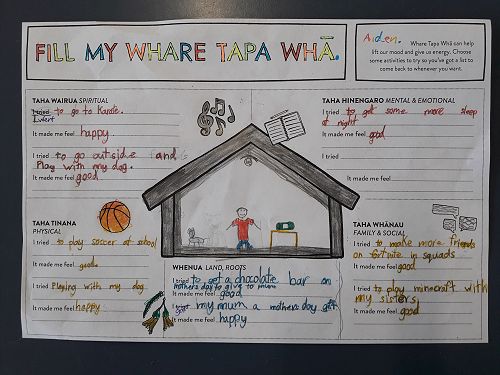 FILL MY WHARE TAPA WHĀ.
Aiden.
Whare Tapa Whā can help
lift our mood and give us energy. Choose
some activities to try so you've got a list to
come back to whenever you want.
TAHA WAIRUA SPIRITUAL
I tried to go to Karate.
I went
It made me feel happy.
I tried to go outside and
Play with my dog.
It made me feel good
TAHA HINENGARO MENTAL & EMOTIONAL
I tried to get some more sleep
at night
It made me feel good
I tried
It made me feel
TAHA TINANA
PHYSICAL
I tried to play soccer at school
It made me feel good.
I tried Playing with my dog
It made me feel happy
WHENUA LAND, ROOTS
I tried to get a chocolate bar on
mothers day to give to mum
It made me feel good
I tried my mum a mothers day gift
It made me feel happy
TAHA WHĀNAU
FAMILY & SOCIAL
I tried to make more friends
on fortnite in squads
It made me feel good
I tried to play minecraft with
my sisters
It made me feel good